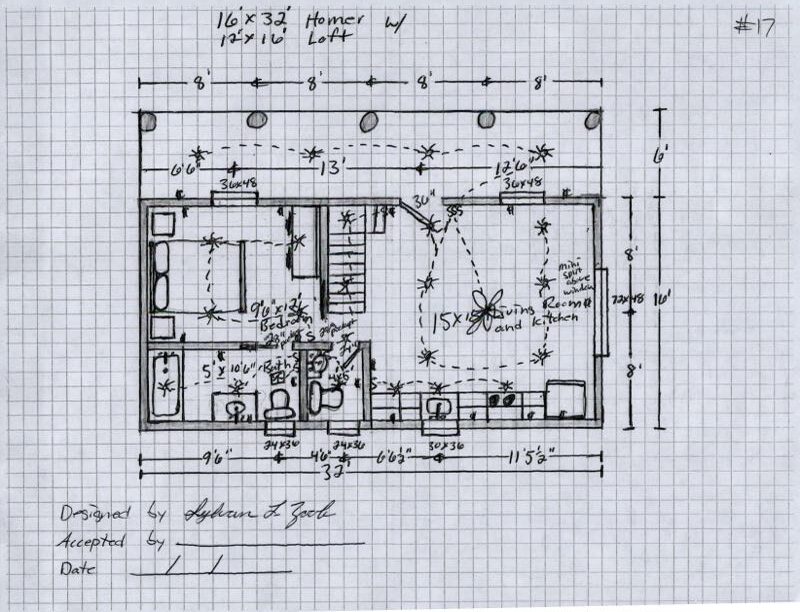 16' x 32' Homer w/
12' x 16' Loft
#17
8' 8' 8' 8'
6'6" 13' 12'6"
6'
36x48 36x48
36"
mini split above window
8'
72x48
16'
9'6" x 12'
Bedroom
15 x Living Room
and kitchen
5' x 10'6" Bath
4x5
8'
24x36 24x36 30x36
9'6" 4'6" 6'6½" 11'5½"
32'
Designed by Sylvan L Zook
Accepted by
Date / /